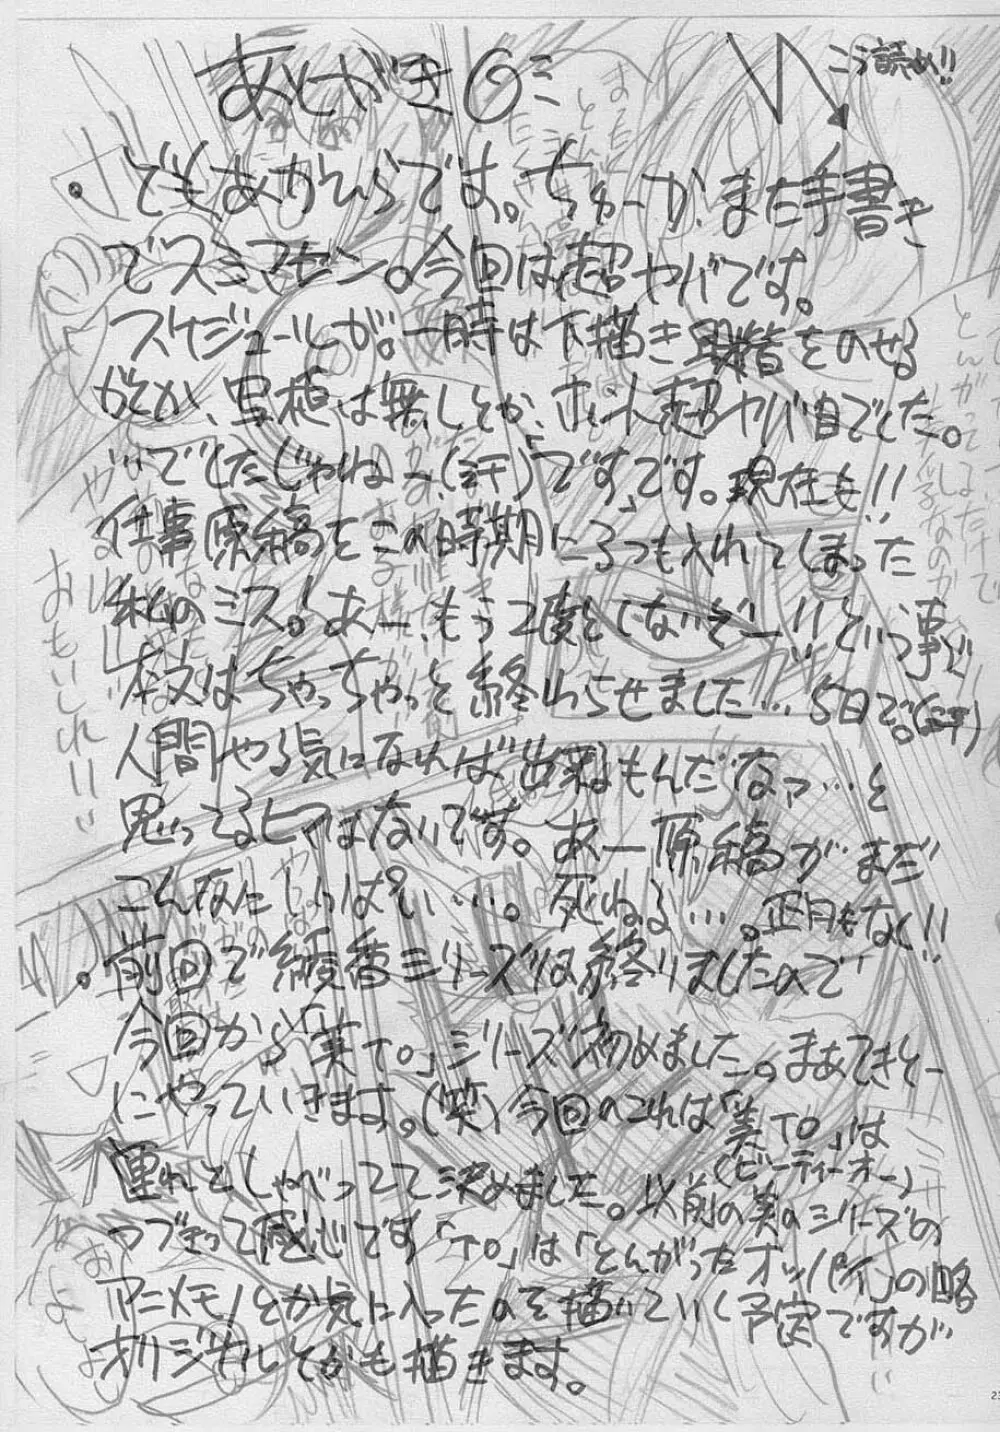 あとがき
こう読め!!
・どもあかひらです。ちゅーか、また手書き
でスミマセン。今回は超ヤバです。
スケジュールが。一時は下描き 段階をのせる
がとか、写植は無しとか、ホント超ヤバ目でした。
でしたじゃねー、(汗)「です」です。現在も!!
仕事原稿をこの時期に3つも入れてしまった
私のミス!あー、もう2度としないぞー!!という事で
本文はちゃっちゃっと終わらせました…5日で。(汗)
人間やる気になれば出来るもんだなァ…と
思ってるヒマはないです。あー原稿がまだ
こんなにいっぱい…。死ねる…。正月もなく!!
・前回で綾香シリーズは終りましたので
今回から「美TO」シリーズ初めました。まあてきとー
にやっていきます。(笑)今回のこれは「美TO」は
(ビーティーオー)
連れとしゃべってて決めました。以前の美のシリーズの
つづきって感じです「TO」は「とんがったオッパイ」の略
アニメモノとか気に入ったのを描いていく予定ですが
オリジナルとかも描きます。
おもいしれ!!
23